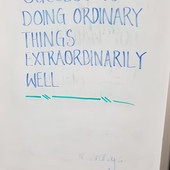 DOING ORDINARY
THINGS
EXTRAORDINARILY
WELL